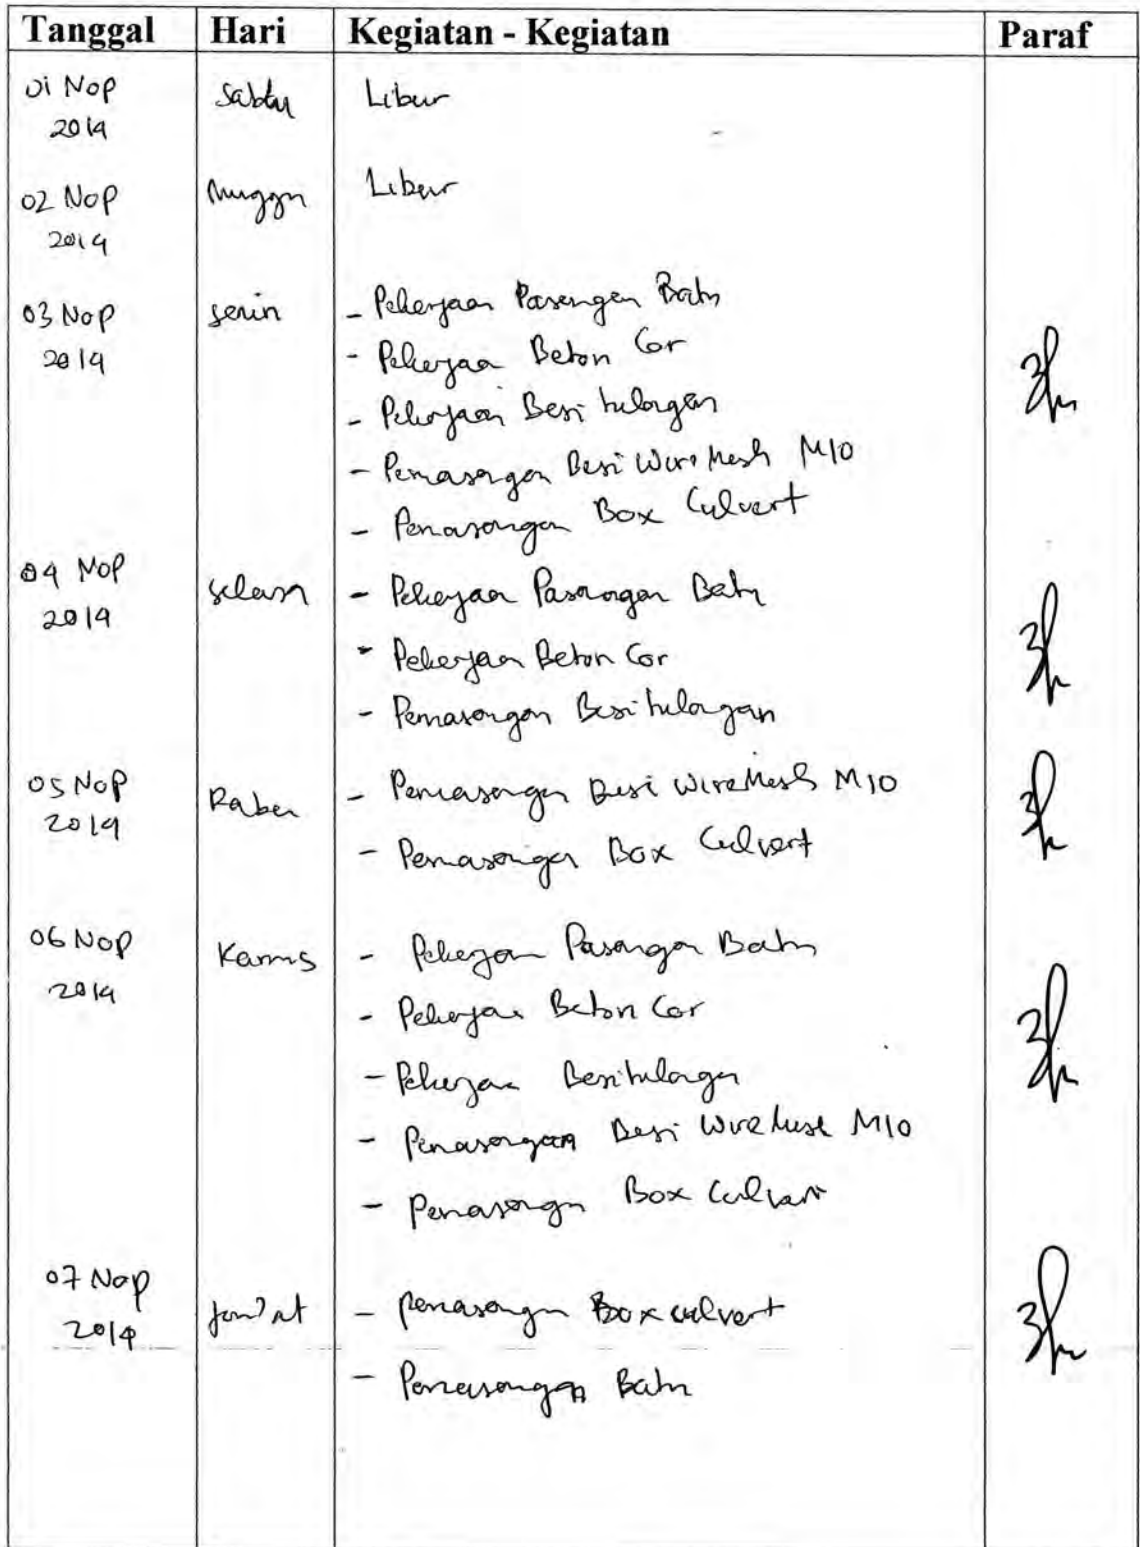 Tanggal Hari Kegiatan - Kegiatan Paraf
01 Nop Sabtu Libur
2014
02 Nop Minggu Libur
2014
03 Nop Senin - Pekerjaan Pasangan Batu
2014 - Pekerjaan Beton Cor
- Pekerjaan Besi tulangan
- Pemasangan Besi Wire Mesh M10
- Pemasangan Box Culvert
04 Nop Selasa - Pekerjaan Pasangan Batu
2014
- Pekerjaan Beton Cor
- Pemasangan Besi tulangan
05 Nop Rabu - Pemasangan Besi Wire Mesh M10
2014
- Pemasangan Box Culvert
06 Nop Kamis - Pekerjaan Pasangan Batu
2014 - Pekerjaan Beton Cor
- Pekerjaan Besi tulangan
- Pemasangan Besi Wire Mesh M10
- Pemasangan Box Culvert
07 Nop Jum'at - Pemasangan Box culvert
2014
- Pemasangan Batu